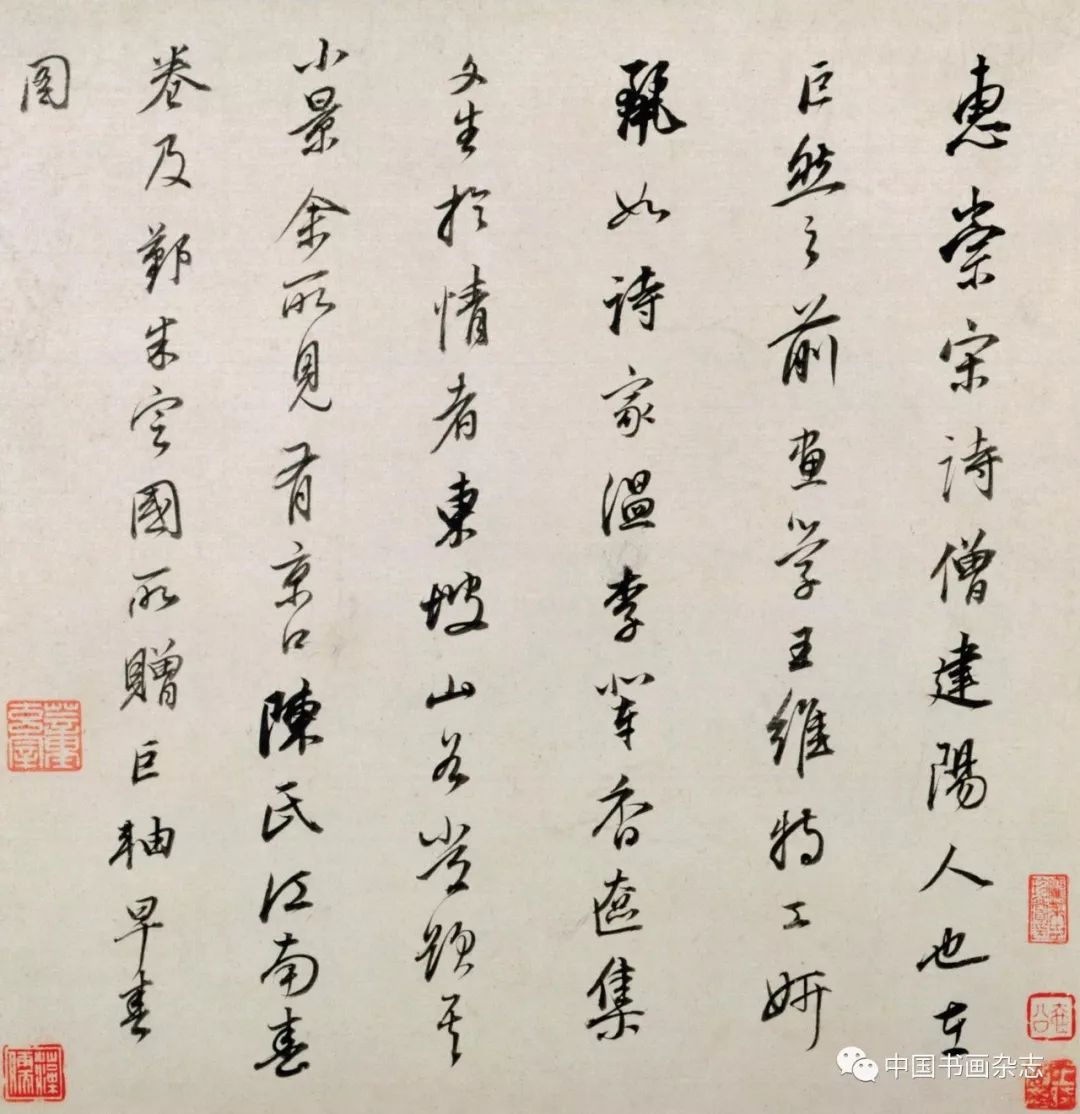 惠崇宋詩僧建陽人也在
巨然之前画学王維特工妍
麗如詩家溫李輩香奩集
文生於情者東坡山谷嘗題其
小景余所見有京口陳氏江南春
卷及鄞朱定國所贈巨軸早春
图
中国书画杂志